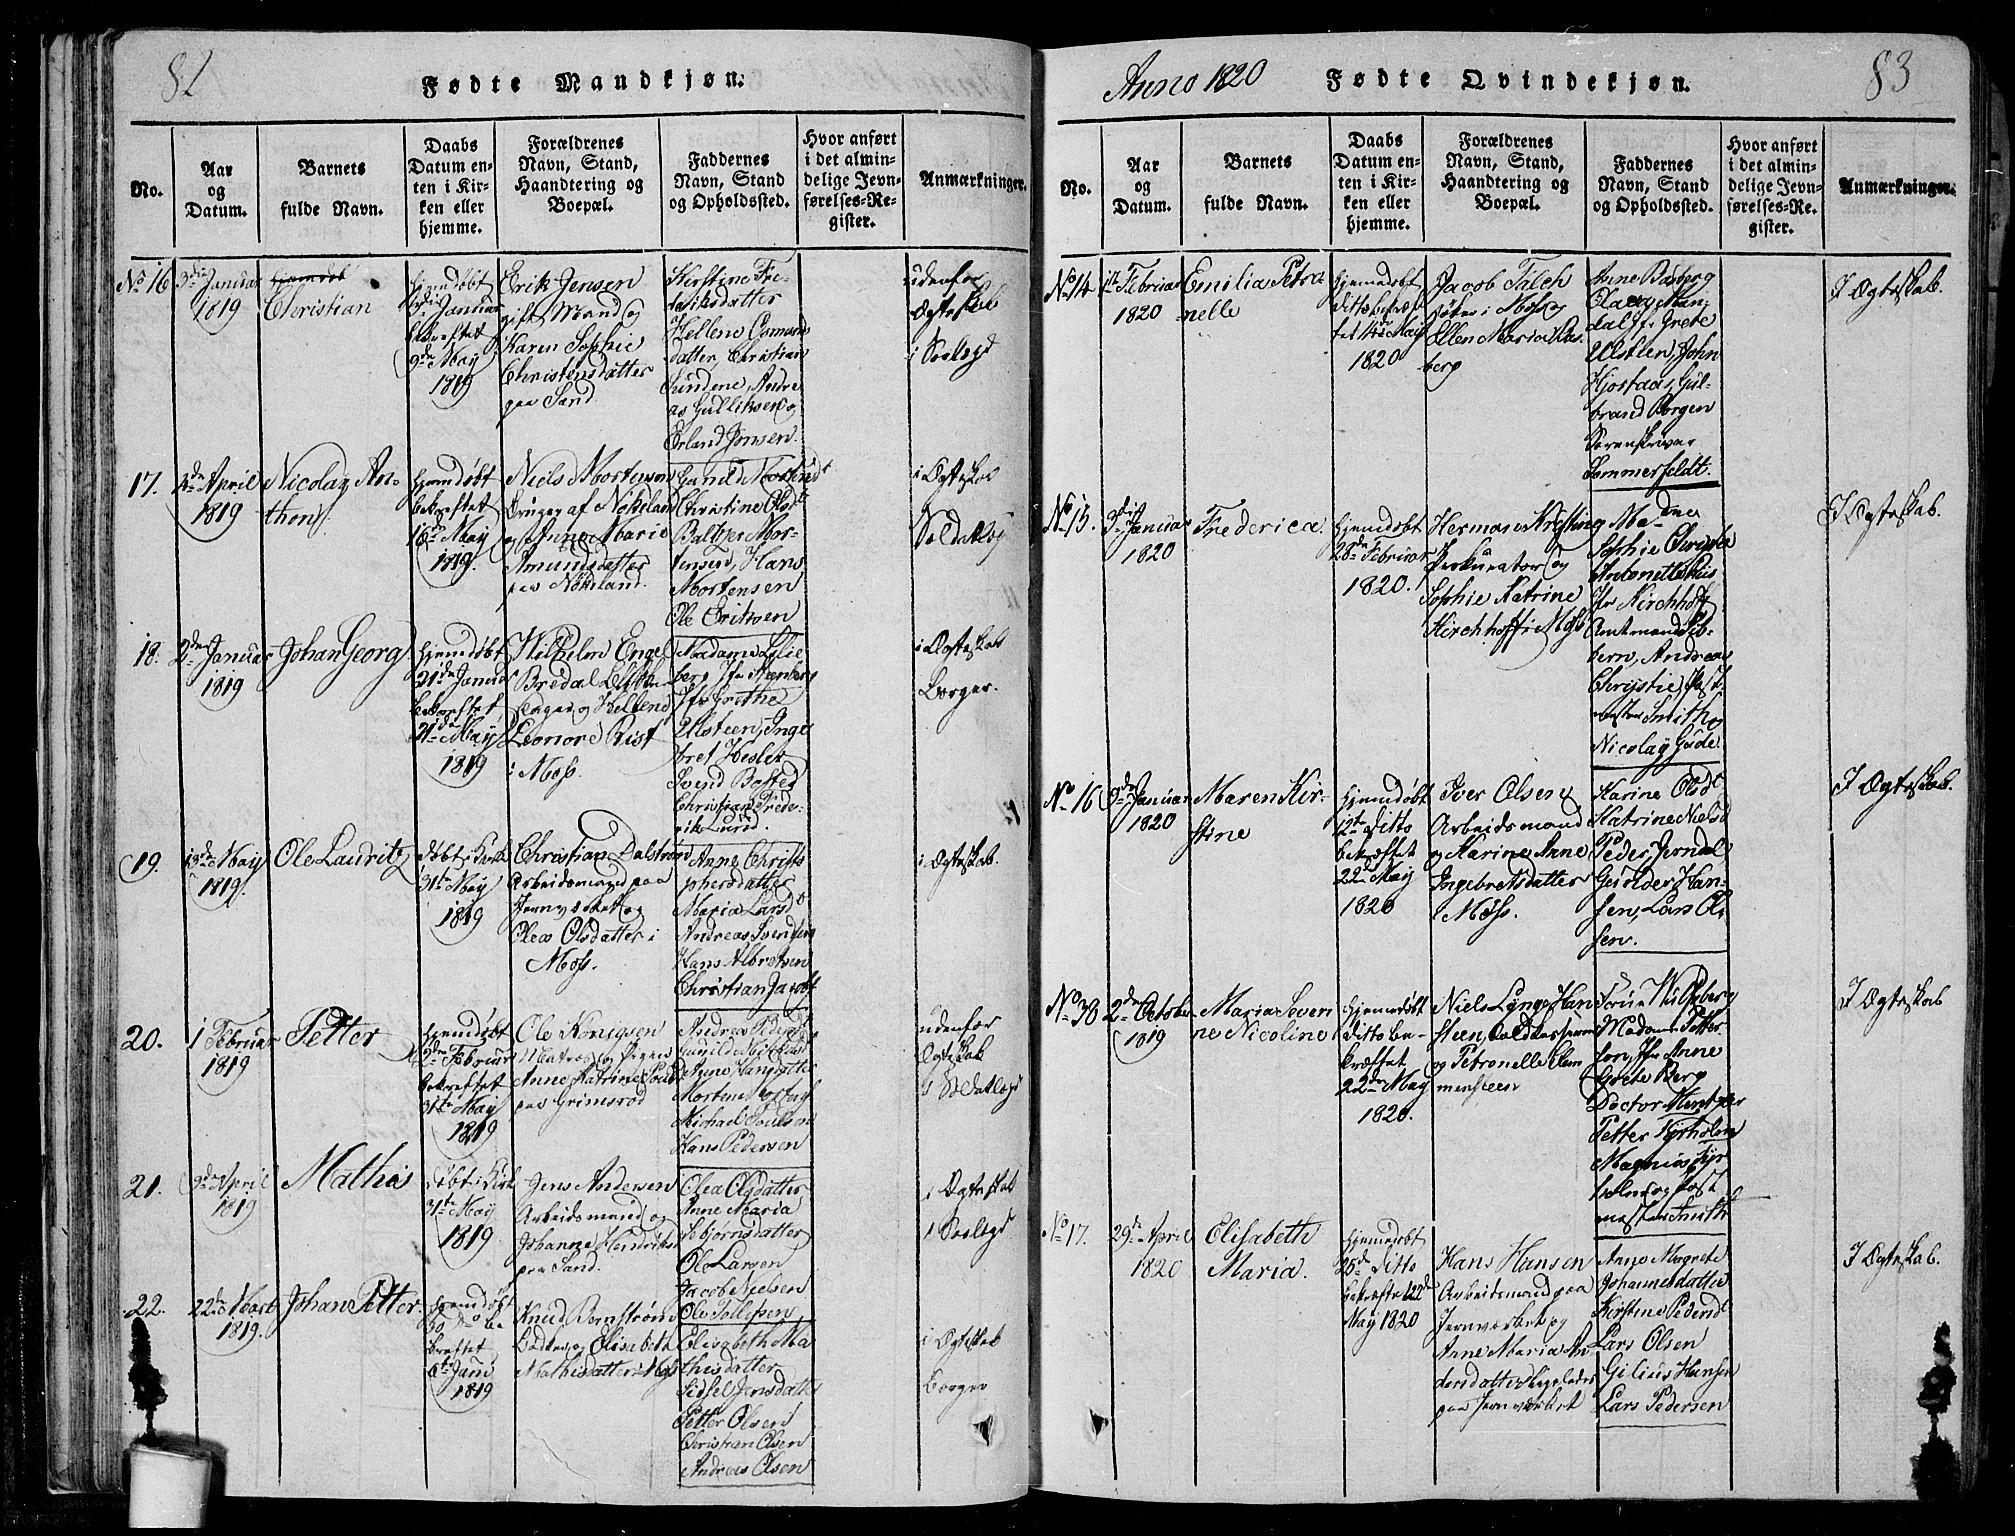 82
Fødte Mandkjøn.
No.
Aar
og
Datum.
Barnets
fulde Navn.
Daabs
Datum en-
ten i Kir-
ken eller
hjemme.
Forældrenes
Navn, Stand,
Haandtering og
Boepæl.
Faddernes
Navn, Stand
og Opholdssted.
Hvor anført
i det almin-
delige Jevn-
førelses-Re-
gister.
Anmærkninger.
No 16
3die Januar
1819
Christian
hjemdøbt
3die Januar
bekræftet
9de May
1819
Erik Jensen
gift Mand og
Karen Sophie
Christensdatter
paa Sand
Kirstine Fre-
deriksdatter
Hellene Osmunds
datter, Christian
Sundene, Andre
as Gulliksen og
Erland Jonsen.
udenfor
Ægteskab
i Soelegd
17.
2den April
1819
Nicolay An-
thon
hjemdøbt
bekræftet
16de May
1819.
Niels Mortensen
Bruger af Nøkeland
og Anne Marie
Amundsdatter
paa Nøkeland.
Gunild Mortensd
Christine Olsd
Baltzer Mor-
tensen, Hans
Mortensen
Ole Eriksen
i Ægteskab
Soldaterlægd
18.
2den Januar
1819
Johan Georg
hjemdøbt
21de Januar
bekræftet
21de May
1819
Wilhelm Engel
Bredal
og Hellene
Leonore Rist
i Moss.
Madame Lilie
berg Jfr
Jfr Grethe
Ulsteen, Inge
bret Hesler
Svend Bosted
Christian Frede-
rik Lund.
i Ægteskab
Borger.
19.
13de May
1819.
Ole Lauritz
Døbt i Kirken
31te May
1819
Christian Dalstrøm
Arbeidsmand paa
Jernværket og
Olea Olsdatter i
Moss.
Anne Christo
phersdatter
Maria Larsd
Andreas Svendsen
Hans Albretsen
Christian Jacobs
i Ægteskab.
20.
1 Februar
1819
Petter
hjemdøbt
2den Februar
bekræftet
31te May
1819
Ole Konigsen
Matros og
Anne Katrine
paa Grimsrød
Andreas
Gunild
Anne Hansdatter
Morten
Michael Poulsen
Hans Pedersen
udenfor
Ægteskab
i Sø Datlægd
21.
9de April
1819
Mathis
Døbt i Kirk
31te May
1819
Jens Andersen
Arbeidsmand og
Johanne Hendriksd
paa Sand.
Olea Olsdatter
Anne Maria
Sebjørnsdatter
Ole Larsen
Jacob Nielsen
Ole Tollefsen
i Ægteskab
i Soelegd
22.
22de Mart
1819.
Johan Petter
hjemdøbt
30 be
kræftet
6te Juni
1819
Knud Bernstrøm
Bødker og Elisabeth
Mathisdatter i Moss
Elisabeth Ma
thisdatter
Sidsel Jensdatter
Petter Olsen
Christian Olsen
Andreas Olsen
i Ægteskab
Borger
Anno 1820
Fødte Qvindekjøn.
83
No.
Aar
og
Datum.
Barnets
fulde Navn.
Daabs
Datum en-
ten i Kir-
ken eller
hjemme.
Forældrenes
Navn, Stand,
Haandtering og
Boepæl.
Faddernes
Navn, Stand
og Opholdssted.
Hvor anført
i det almin-
delige Jevn-
førelses-Re-
gister.
Anmærkninger.
No 14
1te Februar
1820
Emilia Petro-
nelle
hjemmedøbt
ditto bekræf-
tet 14de May
1820
Jacob Falch
i Moss og
Ellen Maria Ras
berg
Anne Rasberg
Man-
dal Jfr Grete
Ulsteen, John
Hjostaas, Gul-
brand Borgen
Sorenskriver
Sommerfeldt.
I Ægteskab.
No 15.
3die Januar
1820
Frederica
hjemdøbt
28de Februar
1820.
Herman Kresting
Prokurator og
Sophie Katrine
Kirchhoff i Moss
Madme
Sophie Christie
Antonette
Jfr Kirchhoff
Amtmand Sib-
bern, Andreas
Chrystie, Post-
mester Smith og
Nicolay Gude
I Ægteskab.
No 16
9de Januar
1820
Maren Kir-
stine
hjemdøbt
12te Ditto
bekræftet
22de May
1820
Iver Olsen
Arbeidsmand
og Karine Anne
Ingebretsdatter
i Moss.
Karine Olsd
Katrine Nielsd
Peder Jernæs
Gulder Han-
sen, Lars Ol
sen.
I Ægteskab.
No 30
2den October
1819
Maria Seven
ne Nicoline
hjemdøbt
ditto be-
kræftet
22de May
1820.
Niels Lynge Han
steen,
og Petronelle Clem
mensteen
Frue Wulfsberg
Madame Petter
sen, Jfr Anne
Grete Berg
Doctor Mentzer
Petter Kyrholm
Magnus Kyr
holm og Post
mester Smith
I Ægteskab
No 17.
29de April
1820
Elisabeth
Maria.
hjemmedøbt
25de Ditto
bekræftet 22de
May 1820
Hans Hansen
Arbeidsmand paa
Jernværket og
Anne Maria An
dersdatter ligeledes
paa Jernværket
Anne Magrete
Johannesdatter
Kirstine Pedersd
Lars Olsen
Gilius Hansen
Lars Pedersen
I Ægteskab.